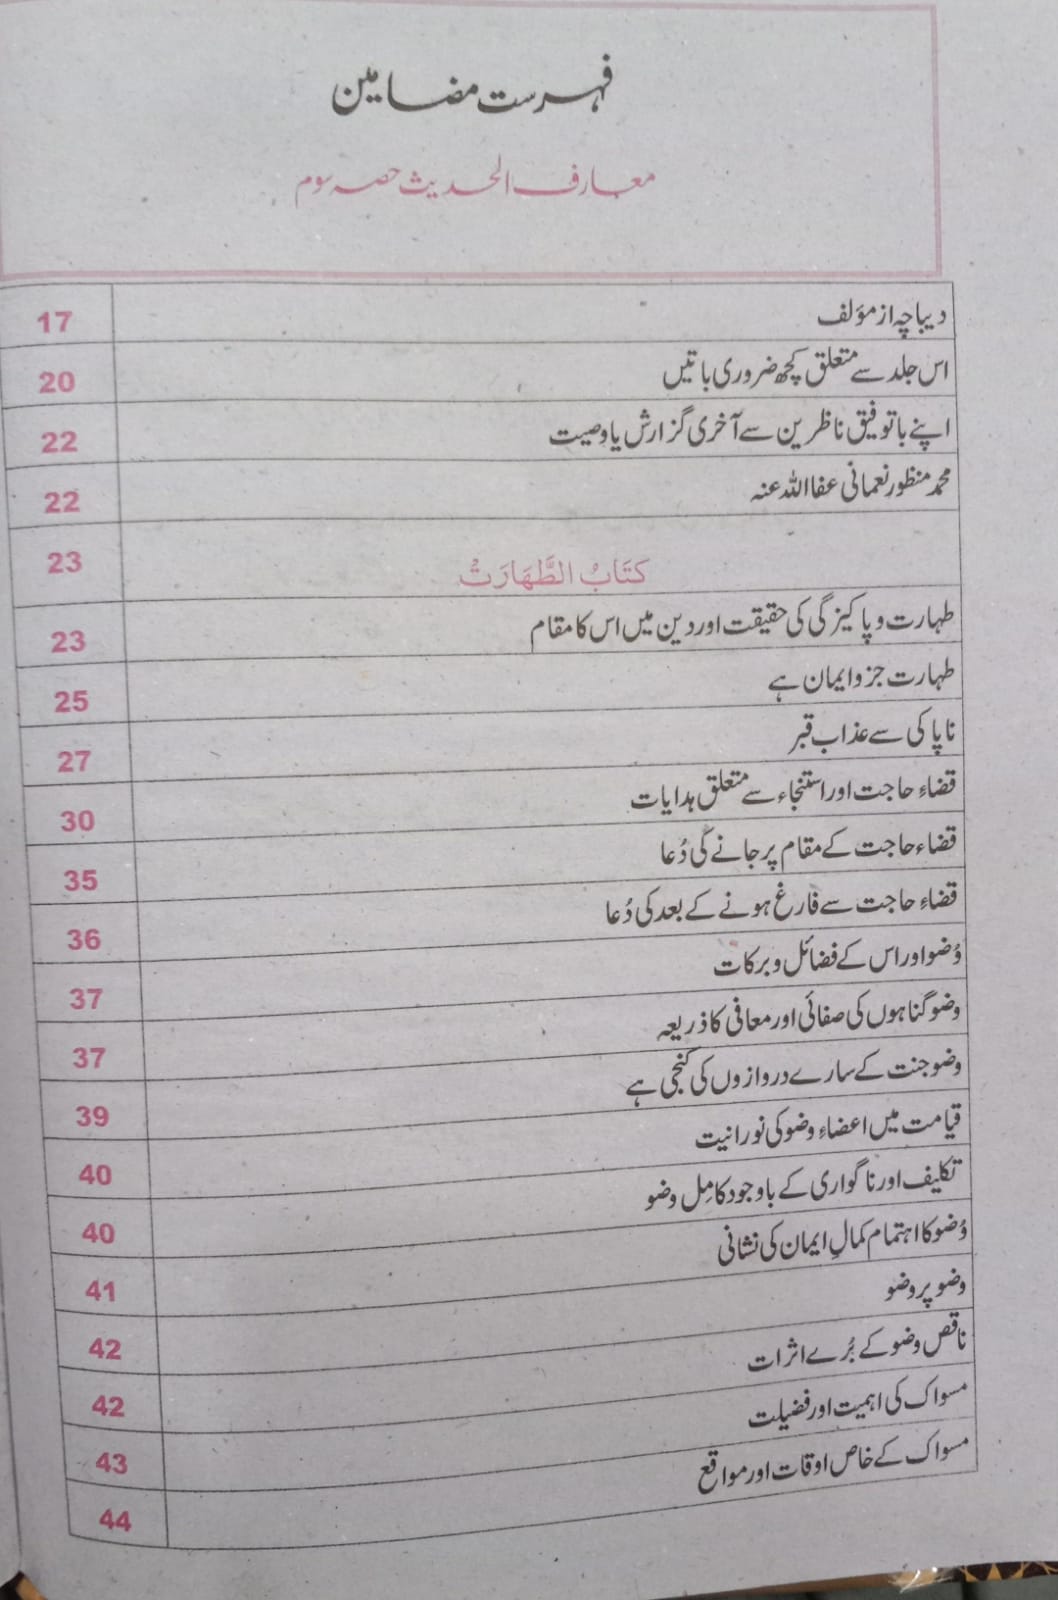 فہرست مضامین
معارف الحدیث حصہ سوم
دیباچہ از مؤلف 17
اس جلد سے متعلق کچھ ضروری باتیں 20
اپنے باتوفیق ناظرین سے آخری گزارش یا وصیت 22
محمد منظور نعمانی عفا اللہ عنہ 22
كتَابُ الطَّهَارَتْ 23
طہارت و پاکیزگی کی حقیقت اور دین میں اس کا مقام 23
طہارت جزو ایمان ہے 25
ناپاکی سے عذاب قبر 27
قضاءِ حاجت اور استنجاء سے متعلق ہدایات 30
قضاء حاجت کے مقام پر جانے کی دُعا 35
قضاءِ حاجت سے فارغ ہونے کے بعد کی دُعا 36
وُضو اور اس کے فضائل و برکات 37
وضو گناہوں کی صفائی اور معافی کا ذریعہ 37
وضو جنت کے سارے دروازوں کی کنجی ہے 39
قیامت میں اعضاءِ وضو کی نورانیت 40
تکلیف اور ناگواری کے باوجود کامِل وضو 40
وُضو کا اہتمام کمالِ ایمان کی نشانی 41
وضو پر وضو 42
ناقص وضو کے بُرے اثرات 42
مسواک کی اہمیت اور فضیلت 43
مسواک کے خاص اوقات اور مواقع 44